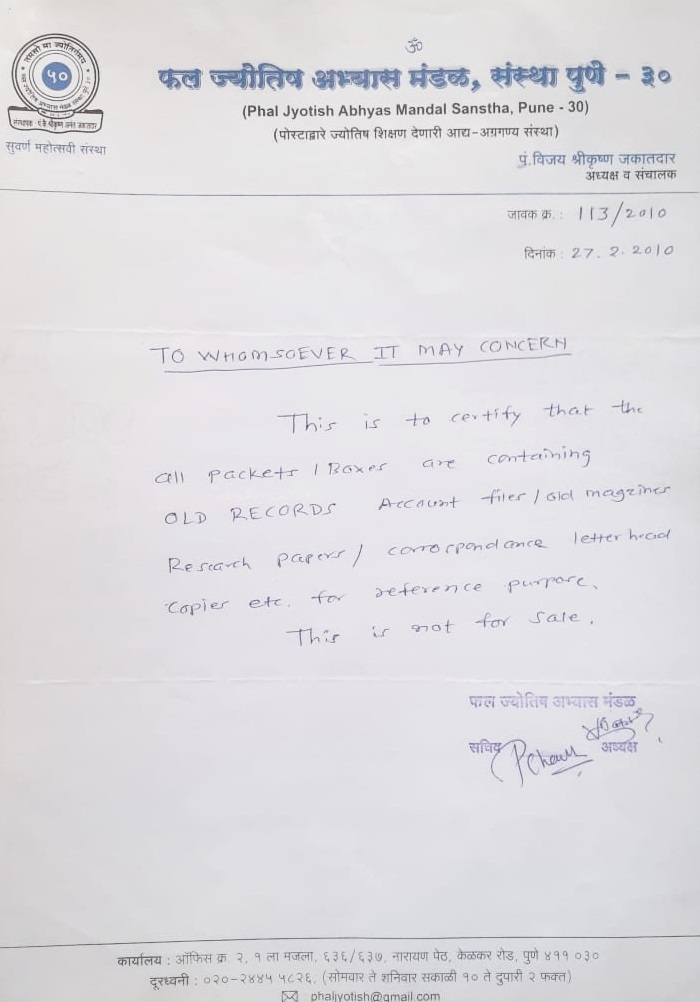 ॐ
तमसो मा ज्योतिर्गमय
५०
संस्थापक - पं.कै.श्रीकृष्ण अनंत जकातदार
सुवर्ण महोत्सवी संस्था
फल ज्योतिष अभ्यास मंडळ, संस्था पुणे - ३०
(Phal Jyotish Abhyas Mandal Sanstha, Pune - 30)
(पोस्टाद्वारे ज्योतिष शिक्षण देणारी आद्य-अग्रगण्य संस्था)
पं.विजय श्रीकृष्ण जकातदार
अध्यक्ष व संचालक
जावक क्र. : 113/2010
दिनांक : 27.2.2010
TO WHOMSOEVER IT MAY CONCERN
This is to certify that the
all packets / Boxes are containing
OLD RECORDS Account files / old magzines
Research papers / corrospondance letterhead
copies etc. for reference purpose.
This is not for sale.
फल ज्योतिष अभ्यास मंडळ
सचिव अध्यक्ष
कार्यालय : ऑफिस क्र. २, १ ला मजला, ६३६/६३७, नारायण पेठ, केळकर रोड, पुणे ४११ ०३०
दूरध्वनी : ०२०-२४४५ ५८२६, (सोमवार ते शनिवार सकाळी १० ते दुपारी २ फक्त)
phaljyotish@gmail.com